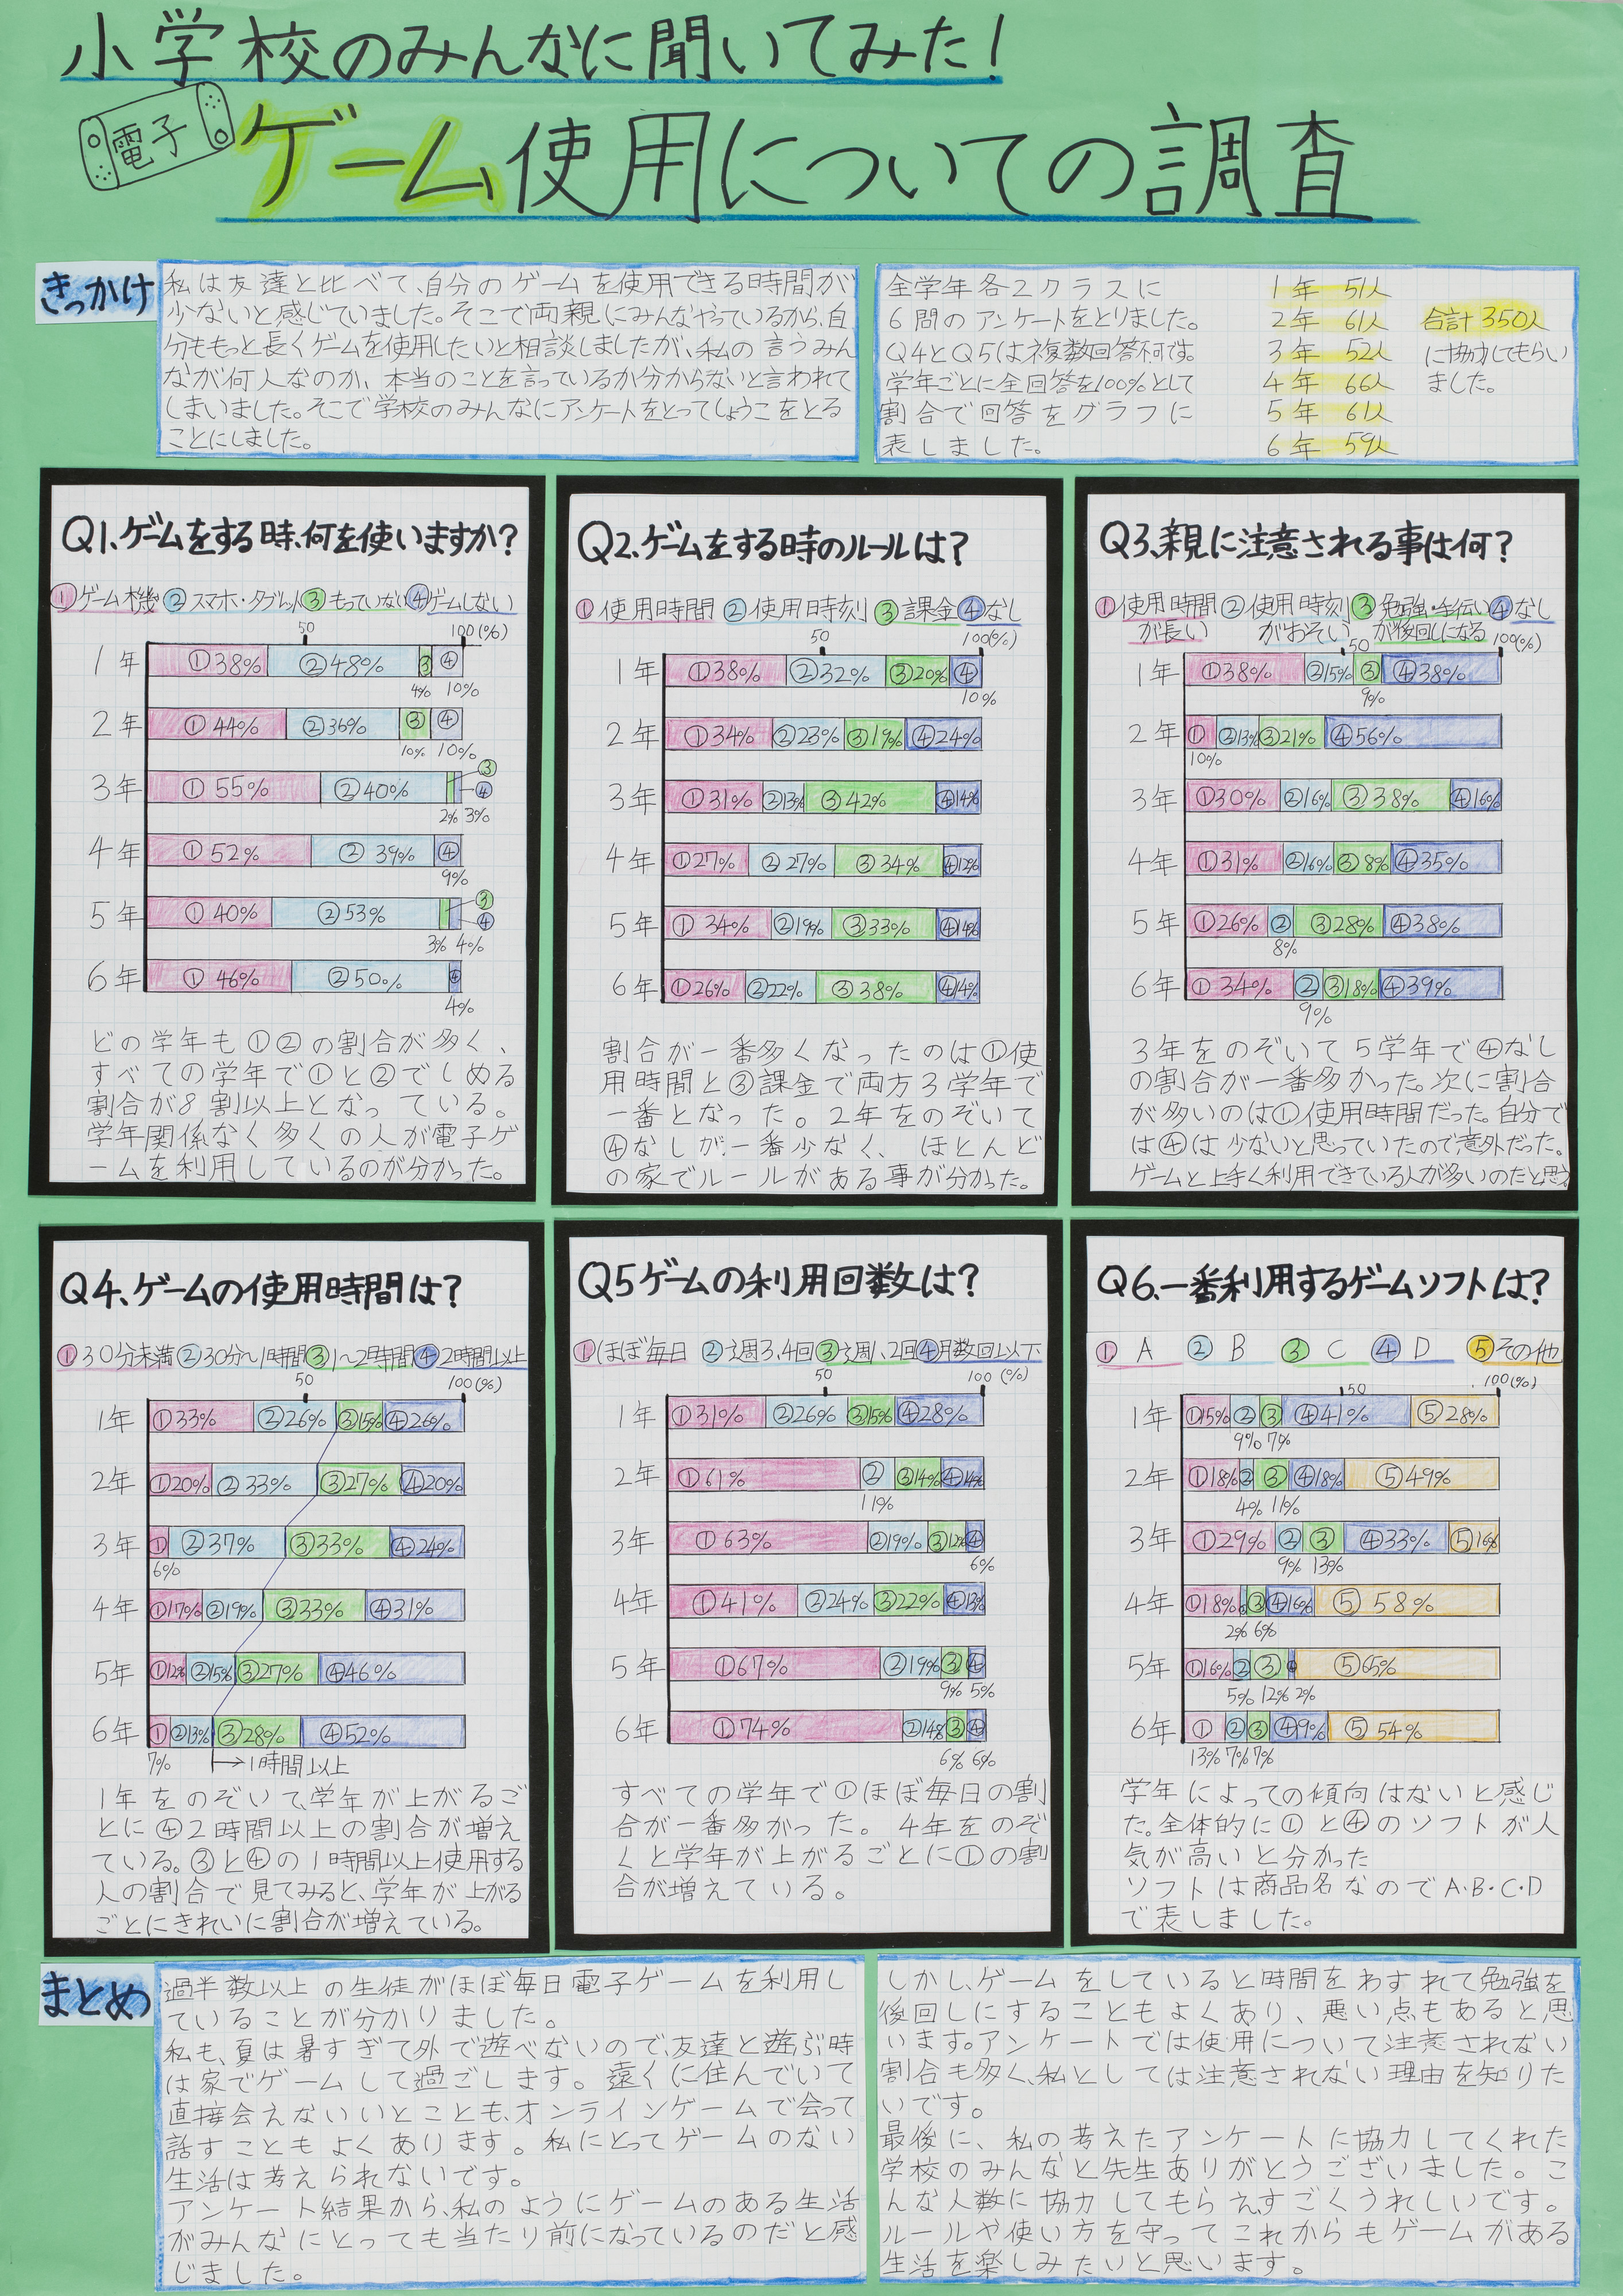 小学校のみんなに聞いてみた!
電子
ゲーム使用についての調査
きっかけ
私は友達と比べて、自分のゲームを使用できる時間が
少ないと感じていました。そこで両親にみんなやっているから、自
分ももっと長くゲームを使用したいと相談しましたが、私の言うみん
なが何人なのか、本当のことを言っているか分からないと言われて
しまいました。そこで学校のみんなにアンケートをとってしょうこをとる
ことにしました。
全学年各2クラスに
6問のアンケートをとりました。
Q4とQ5は複数回答不可です。
学年ごとに全回答を100%として
割合で回答をグラフに
表しました。
1年 51人
2年 61人
3年 52人
4年 66人
5年 61人
6年 59人
合計350人
に協力してもらい
ました。
Q1、ゲームをする時、何を使いますか?
①ゲーム機 ②スマホ・タブレット ③もっていない ④ゲームしない
50 100(%)
1年 ①38% ②48% ③ ④
4% 10%
2年 ①44% ②36% ③ ④
10% 10%
3年 ①55% ②40% ③ ④
2% 3%
4年 ①52% ②39% ④
9%
5年 ①40% ②53% ③ ④
3% 4%
6年 ①46% ②50% ④
4%
どの学年も①②の割合が多く、
すべての学年で①と②でしめる
割合が8割以上となっている。
学年関係なく多くの人が電子ゲ
ームを利用しているのが分かった。
Q2、ゲームをする時のルールは?
①使用時間 ②使用時刻 ③課金 ④なし
50 100(%)
1年 ①38% ②32% ③20% ④
10%
2年 ①34% ②23% ③19% ④24%
3年 ①31% ②13% ③42% ④14%
4年 ①27% ②27% ③34% ④12%
5年 ①34% ②19% ③33% ④14%
6年 ①26% ②22% ③38% ④14%
割合が一番多くなったのは①使
用時間と③課金で両方3学年で
一番となった。2年をのぞいて
④なしが一番少なく、ほとんど
の家でルールがある事が分かった。
Q3、親に注意される事は何?
①使用時間 ②使用時刻 ③勉強・手伝い ④なし
が長い がおそい が後回しになる
50 100(%)
1年 ①38% ②15% ③ ④38%
9%
2年 ① ②13% ③21% ④56%
10%
3年 ①30% ②16% ③38% ④16%
4年 ①31% ②16% ③8% ④35%
5年 ①26% ② ③28% ④38%
8%
6年 ①34% ② ③18% ④39%
9%
3年をのぞいて5学年で④なし
の割合が一番多かった。次に割合
が多いのは①使用時間だった。自分で
は④は少ないと思っていたので、意外だった。
ゲームと上手く利用できている人が多いのだと思う。
Q4、ゲームの使用時間は?
①30分未満 ②30分~1時間 ③1~2時間 ④2時間以上
50 100(%)
1年 ①33% ②26% ③15% ④26%
2年 ①20% ②33% ③27% ④20%
3年 ① ②37% ③33% ④24%
6%
4年 ①17% ②19% ③33% ④31%
5年 ①12% ②15% ③27% ④46%
6年 ① ②13% ③28% ④52%
7% →1時間以上
1年をのぞいて、学年が上がるご
とに④2時間以上の割合が増え
ている。③と④の1時間以上使用する
人の割合で見てみると、学年が上がる
ごとにきれいに割合が増えている。
Q5 ゲームの利用回数は?
①ほぼ毎日 ②週3、4回 ③週1、2回 ④月数回以下
50 100(%)
1年 ①31% ②26% ③15% ④28%
2年 ①61% ② ③14% ④14%
11%
3年 ①63% ②19% ③12% ④
6%
4年 ①41% ②24% ③22% ④13%
5年 ①67% ②19% ③ ④
9% 5%
6年 ①74% ②14% ③ ④
6% 6%
すべての学年で①ほぼ毎日の割
合が一番多かった。4年をのぞ
くと学年が上がるごとに①の割
合が増えている。
Q6、一番利用するゲームソフトは?
①A ②B ③C ④D ⑤その他
50 100(%)
1年 ①15% ② ③ ④41% ⑤28%
9% 7%
2年 ①18% ② ③ ④18% ⑤49%
4% 11%
3年 ①29% ② ③ ④33% ⑤16%
9% 13%
4年 ①18% ② ③ ④16% ⑤58%
2% 6%
5年 ①16% ② ③ ④ ⑤65%
5% 12% 2%
6年 ① ② ③ ④19% ⑤54%
13% 7% 7%
学年によっての傾向はないと感じ
た。全体的に①と④のソフトが人
気が高いと分かった
ソフトは商品名なのでA・B・C・D
で表しました。
まとめ
過半数以上の生徒がほぼ毎日電子ゲームを利用し
ていることが分かりました。
私も、夏は暑すぎて外で遊べないので、友達と遊ぶ時
は家でゲームして過ごします。遠くに住んでいて
直接会えないいとことも、オンラインゲームで会って
話すこともよくあります。私にとってゲームのない
生活は考えられないです。
アンケート結果から、私のようにゲームのある生活
がみんなにとっても当たり前になっているのだと感
じました。
しかし、ゲームをしていると時間をわすれて勉強を
後回しにすることもよくあり、悪い点もあると思
います。アンケートでは使用について注意されない
割合も多く、私としては注意されない理由を知りた
いです。
最後に、私の考えたアンケートに協力してくれた
学校のみんなと先生ありがとうございました。こ
んな人数に協力してもらえ、すごくうれしいです。
ルールや使い方を守ってこれからもゲームがある
生活を楽しみたいと思います。